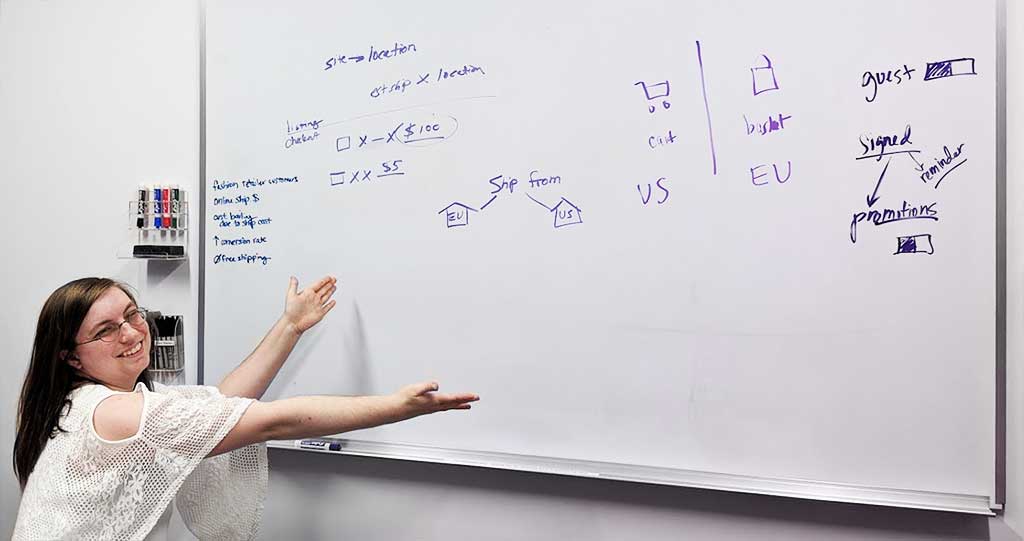 site → location
est ship X location
listing
checkout
X – X $100
X X $5
fashion retailer customers
online ship $
due to ship cost
↑ conversion rate
free shipping
Ship from
EU
US
cart
US
basket
EU
guest
signed
reminder
promotions